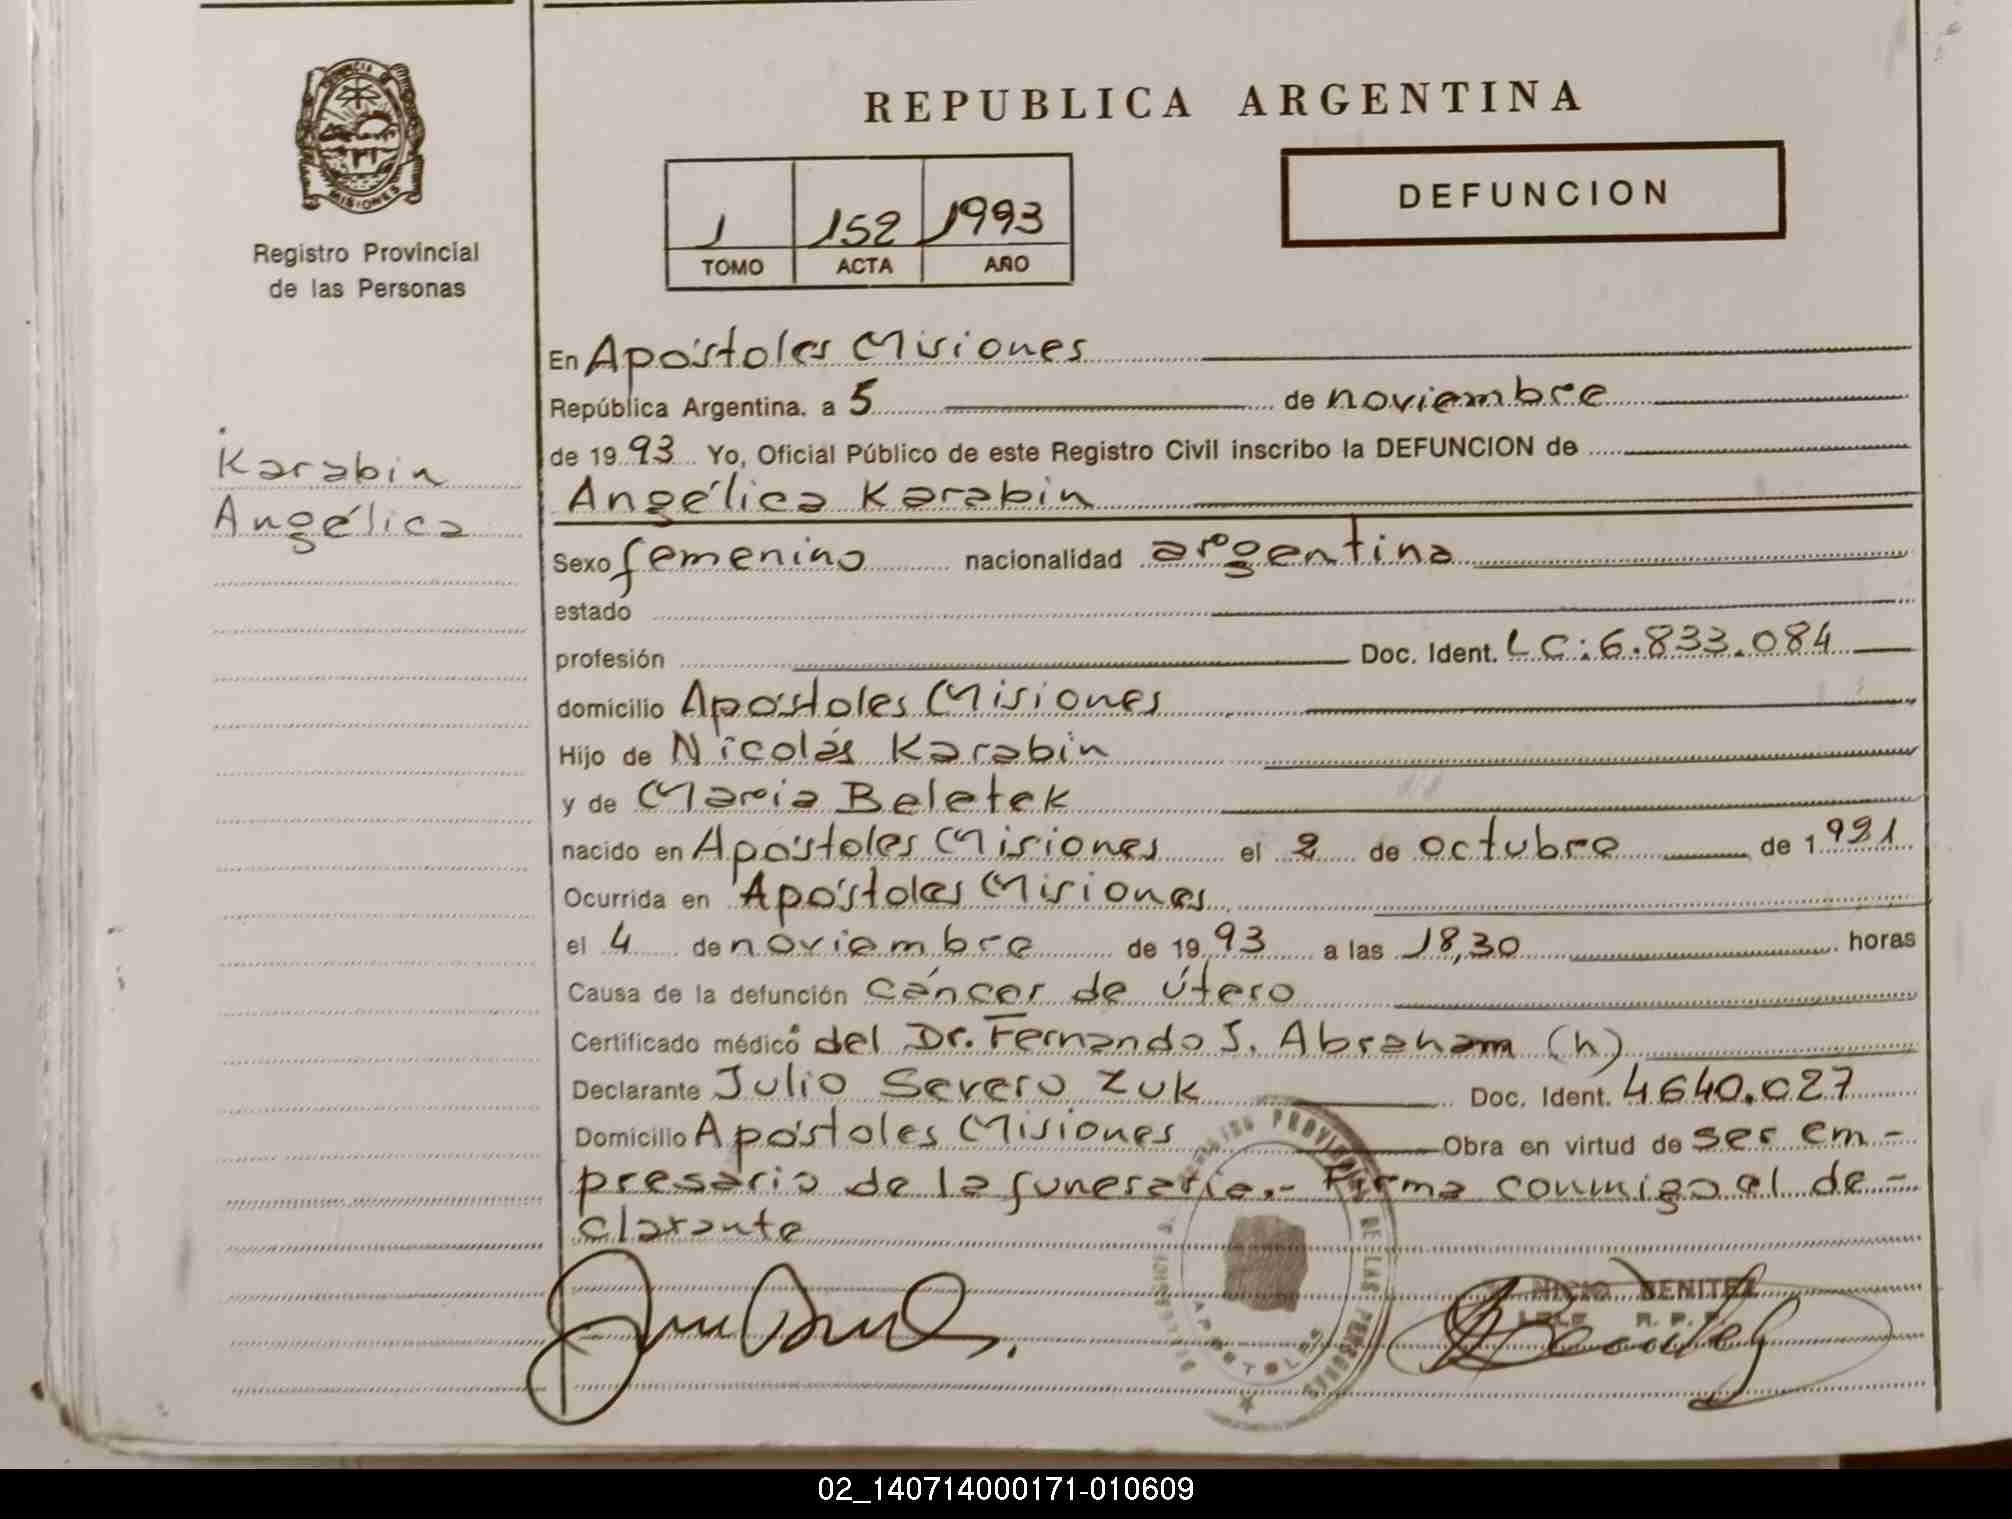 PROVINCIA DE
MISIONES
Registro Provincial
de las Personas
REPUBLICA ARGENTINA
DEFUNCION
1 152 1993
TOMO ACTA AÑO
Karabin
Angélica
En Apóstoles Misiones
República Argentina, a 5 de noviembre
de 1993 Yo, Oficial Público de este Registro Civil inscribo la DEFUNCION de
Angélica Karabin
Sexo femenino nacionalidad argentina
estado
profesión Doc. Ident. LC:6.833.084
domicilio Apóstoles Misiones
Hijo de Nicolás Karabin
y de Maria Beletek
nacido en Apóstoles Misiones el 2 de octubre de 1921
Ocurrida en Apóstoles Misiones
el 4 de noviembre de 1993 a las 18,30 horas
Causa de la defunción cáncer de útero
Certificado médico del Dr. Fernando J. Abraham (h)
Declarante Julio Severo Zuk Doc. Ident. 4640.027
Domicilio Apóstoles Misiones Obra en virtud de ser em-
presario de la funeraria.- Firma conmigo el de-
clarante
PROVINCIAL DE LAS PERSONAS
APOSTOLES
NICIO BENITEZ
R. P. P.
02_140714000171-010609